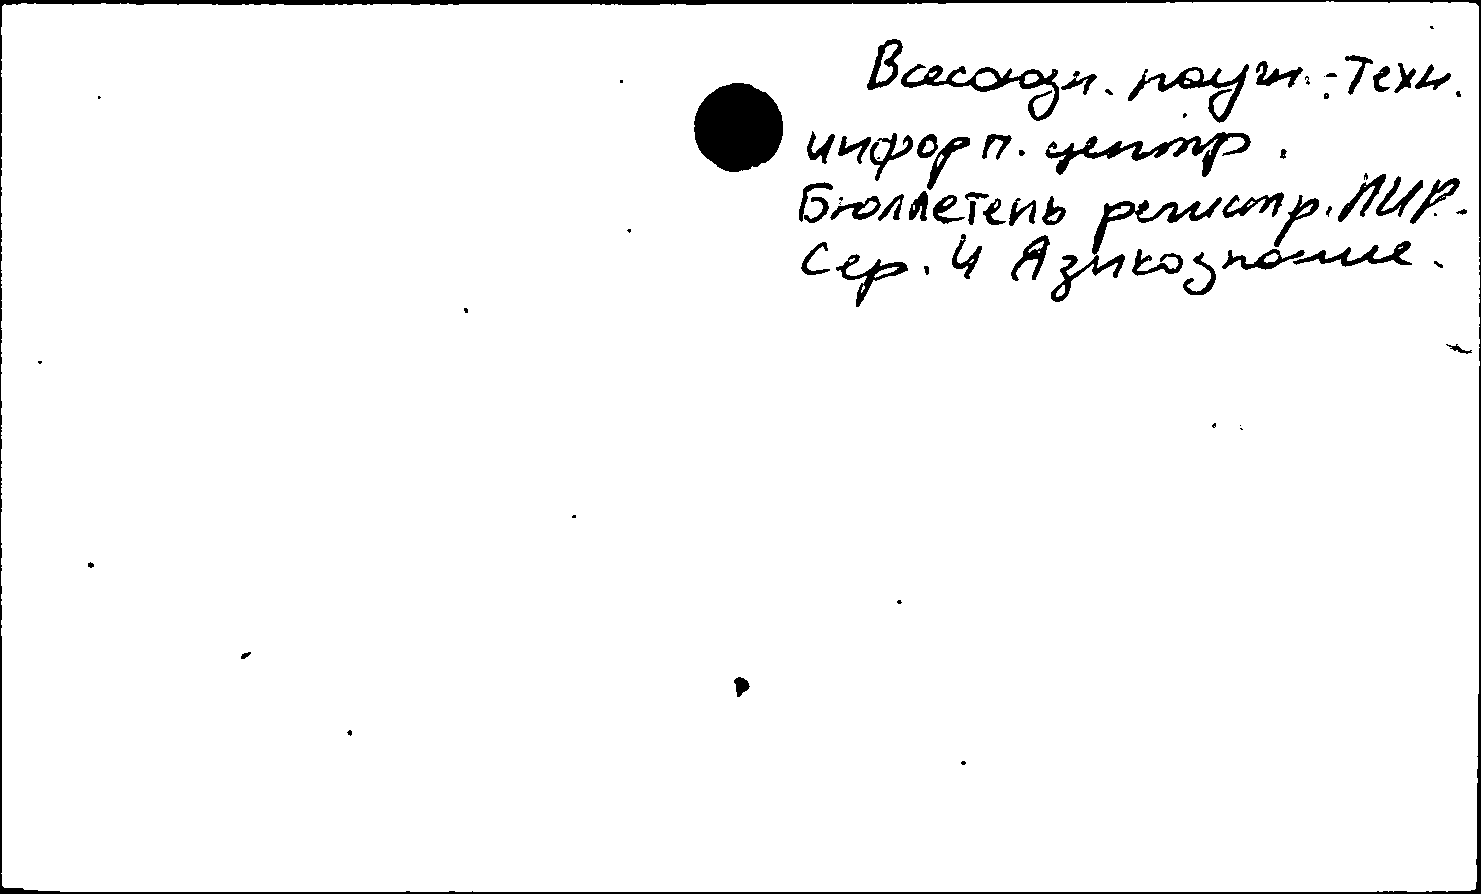 Всесоюзн. научн.-техн.
информ. центр.
Бюллетень регистр. НИР.
Сер. 4 Языкознание.